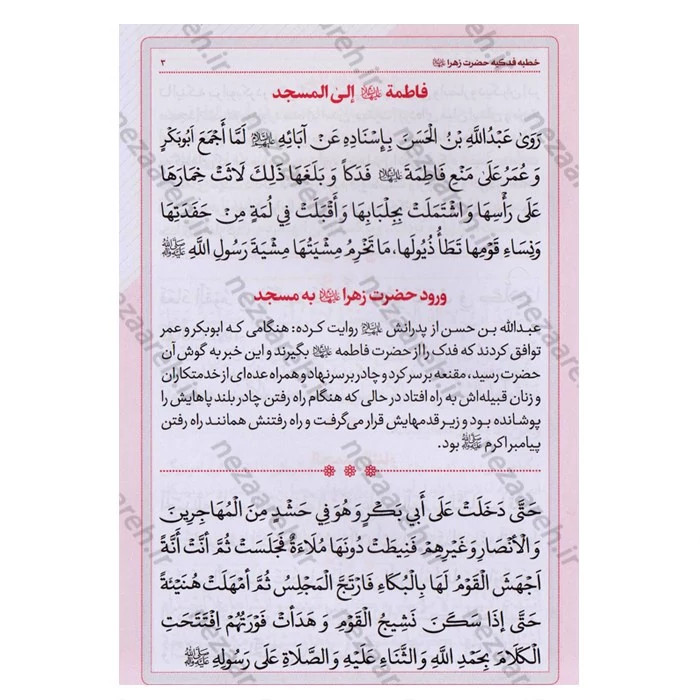 خطبه فدکیه حضرت زهرا علیهاالسلام ۳
فاطمة علیهاالسلام إلی المسجد
رَوَیٰ عَبْدُاللَّهِ بْنُ الْحَسَنِ بِإسْنَادِهِ عَنْ آبَائِهِ علیهم‌السلام لَمَّا أَجْمَعَ اَبُوبَکْرٍ
وَ عُمَرُ عَلَی مَنْعِ فَاطِمَةَ علیهاالسلام فَدَکاً وَ بَلَغَهَا ذَلِكَ لَاثَتْ خِمَارَهَا
عَلَی رَأْسِهَا وَ اشْتَمَلَتْ بِجِلْبَابِهَا وَ أَقْبَلَتْ فِي لُمَةٍ مِنْ حَفَدَتِهَا
وَنِسَاءِ قَوْمِهَا تَطَأُ ذُیُولَهَا، مَا تَخْرِمُ مِشْیَتُهَا مِشْیَةَ رَسُولِ اللَّهِ ﷺ
ورود حضرت زهرا علیهاالسلام به مسجد
عبدالله بن حسن از پدرانش علیهم‌السلام روایت کرده: هنگامی که ابوبکر و عمر
توافق کردند که فدک را از حضرت فاطمه علیهاالسلام بگیرند و این خبر به گوش آن
حضرت رسید، مقنعه بر سر کرد و چادر بر سر نهاد و همراه عده‌ای از خدمتکاران
و زنان قبیله‌اش به راه افتاد در حالی که هنگام راه رفتن چادر بلند پاهایش را
پوشانده بود و زیر قدمهایش قرار می‌گرفت و راه رفتنش همانند راه رفتن
پیامبر اکرم ﷺ بود.
حَتَّی دَخَلَتْ عَلَی أَبِي بَکْرٍ وَ هُوَ فِي حَشْدٍ مِنَ الْمُهَاجِرِینَ
وَ الْأَنْصَارِ وَ غَیْرِهِمْ فَنِیطَتْ دُونَهَا مُلَاءَةٌ فَجَلَسَتْ ثُمَّ أَنَّتْ أَنَّةً
اَجْهَشَ الْقَوْمُ لَهَا بِالْبُکَاءِ فَارْتَجَّ الْمَجْلِسُ ثُمَّ أَمْهَلَتْ هُنَیْئَةً
حَتَّی إِذَا سَکَنَ نَشِیجُ الْقَوْمِ وَ هَدَأَتْ فَوْرَتُهُمْ اِفْتَتَحَتِ
الْکَلَامَ بِحَمْدِ اللَّهِ وَ الثَّنَاءِ عَلَیْهِ وَ الصَّلَاةِ عَلَی رَسُولِهِ ﷺ
nezaareh.ir